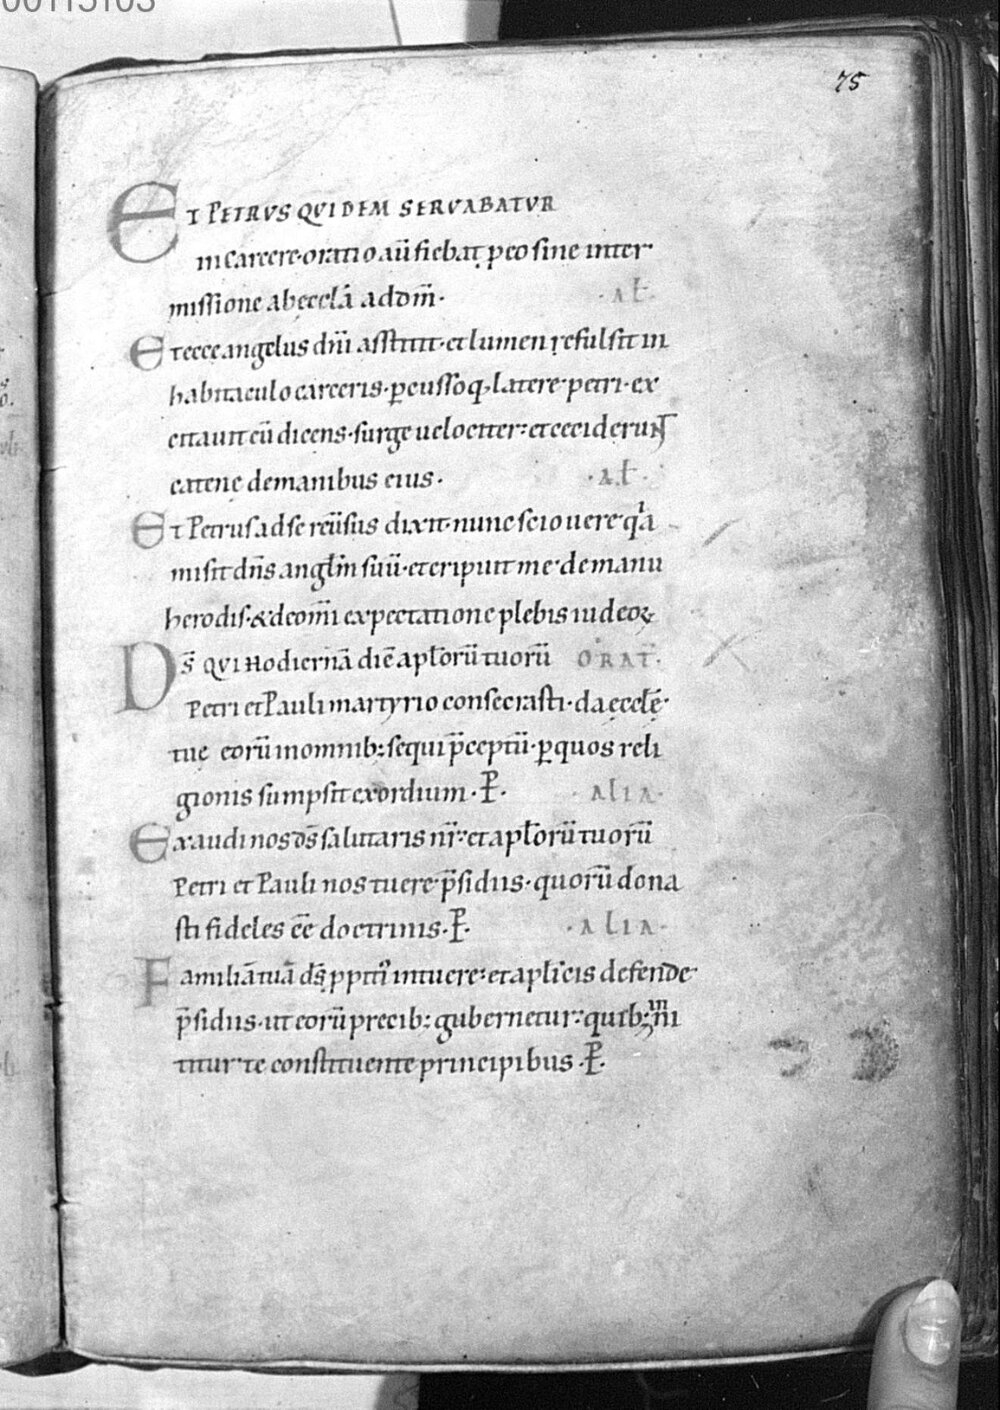 00115103
75
ET PETRVS QVIDEM SERVABATVR
in carcere· oratio aū fiebat p eo sine inter
missione ab ęcclā ad dom̄· ·ał·
Et ecce angelus dn̄i asstitit· et lumen refulsit in
habitaculo carceris· ꝑcussoq; latere petri· ex
citauit eū dicens· surge uelociter· et ceciderunt
catenę de manibus eius· ·ał·
Et Petrus ad se reūsus dixit· nunc scio uere qa
misit dn̄s angłm suū· et eripuit me de manu
herodis· & de om̄i expectatione plebis iudeoꝝ
DS̄ QVI Hodiernā diē apłorū tuorū ORAT·
Petri et Pauli martyrio consecrasti· da ęccłę·
tuę eorū in omnib: sequi p̄ceptū· ꝑ quos reli
gionis sumpsit exordium· P· alia·
Exaudi nos ds̄ salutaris nr̄· et apłorū tuorū
Petri et Pauli nos tuere p̄sidiis· quorū dona
sti fideles eē doctrinis· P· ·alia·
Familiā tuā ds̄ ppitī intuere· et apłicis defende
p̄sidiis· ut eorū precib: gubernetur· quib; in ni
titur te constituente principibus· P·